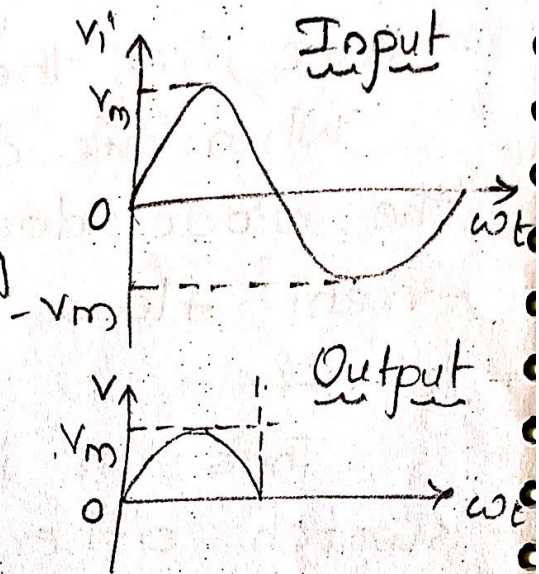 Vi
Input
Vm
0
ωt
-Vm
Output
V
Vm
0
ωt